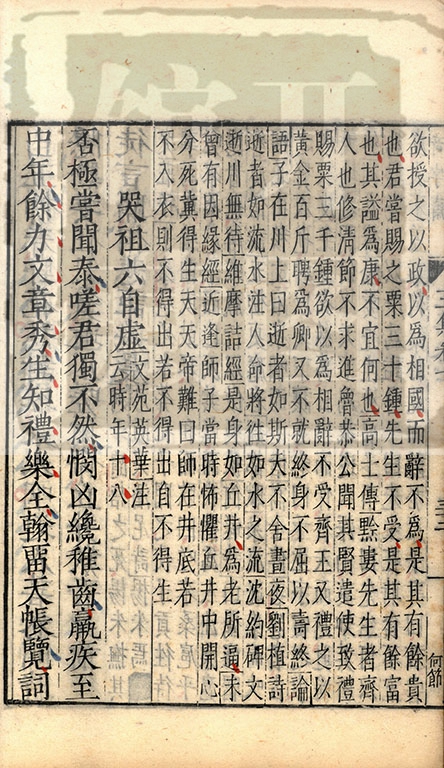 欲授之以政以爲相國而辭不爲是其有餘貴
也君嘗賜之粟三十鍾先生不受是其有餘富
也其謚爲康不宜何也高士傳黔婁先生者齊
人也修清節不求進魯恭公聞其賢遣使致禮
賜粟三千鍾欲以爲相辭不受齊王又禮之以
黃金百斤聘爲卿又不就終身不屈以壽終論
語子在川上曰逝者如斯夫不舍晝夜劉楨詩
逝者如流水注人命將徃如水之流沈約碑文
逝川無待維摩詰經是身如丘井爲老所逼未
曾有因緣經近逢師子當時怖懼丘井中開心
分死冀得生天天帝難曰師在井底若
不入衣則不得出若不得出自不得生
哭祖六自虛
文苑英華注
云時年十八
否極嘗聞泰嗟君獨不然憫凶纔稚齒羸疾至
中年餘力文章秀生知禮樂全翰畱天帳覽詞
何節